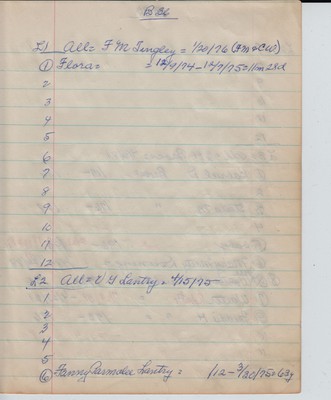 B 26
L1 All = F M Tingley = 1/20/76 (FM & CW)
① Flora = = 12/9/74 – 12/7/75 = 11m 28d
2
3
4
5
6
7
8
9
10
11
12
L2 All = V G Lantry = 4/15/75
1
2
3
4
5
⑥ Fanny Parmelee Lantry = /12 – 3/20/75 = 63y